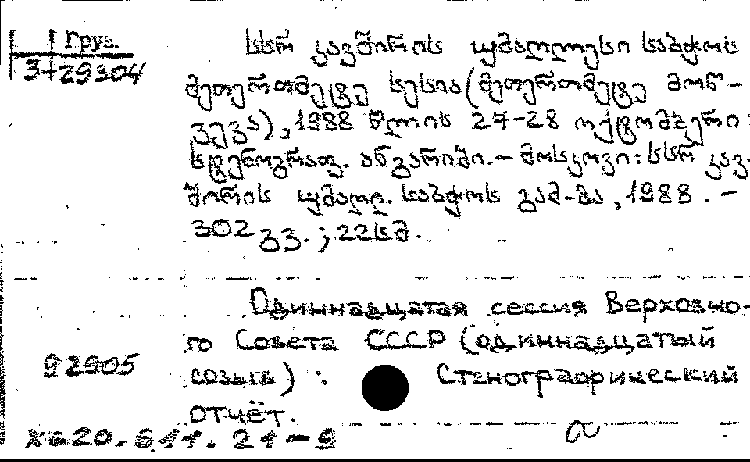 Груз.
3+29304
სსრ კავშირის უმაღლესი საბჭოს
მეთერთმეტე სესია (მეთერთმეტე მოწ-
ვევა), 1988 წლის 27-28 ოქტომბერი:
სტენოგრაფ. ანგარიში. - მოსკოვი: სსრ კავ-
შირის უმაღლ. საბჭოს გამ-მა, 1988. -
302 გვ.; 22 სმ.
Одиннадцатая сессия Верховно-
го Совета СССР (одиннадцатый
92905
созыв): Стенографический
отчёт.
Х620.611.21-9
а